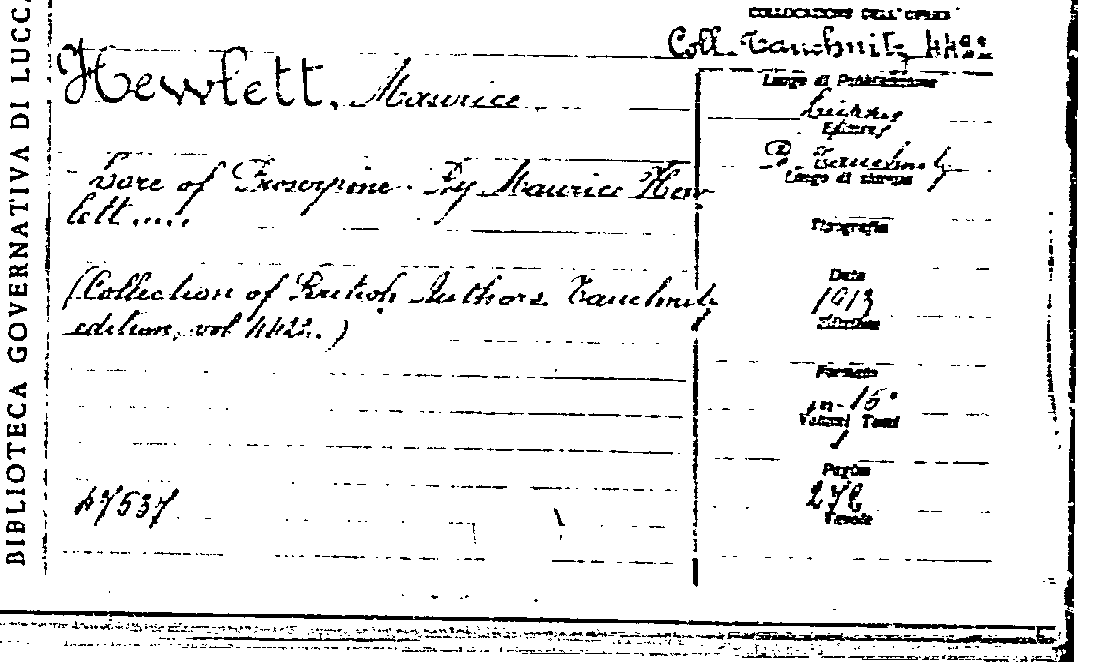 BIBLIOTECA GOVERNATIVA DI LUCCA
COLLOCAZIONE DELL'OPERA
Coll. Tauchnitz 4422
Hewlett, Maurice
Lore of Proserpine. By Maurice Hew
lett.....
(Collection of British Authors Tauchnitz
edition, vol 4422.)
47537
Luogo di Pubblicazione
Editore
B. Tauchnitz
Luogo di stampa
Tipografia
Data
1913
Formato
in-16°
Volumi Tomi
1
Pagine
278
Tavole